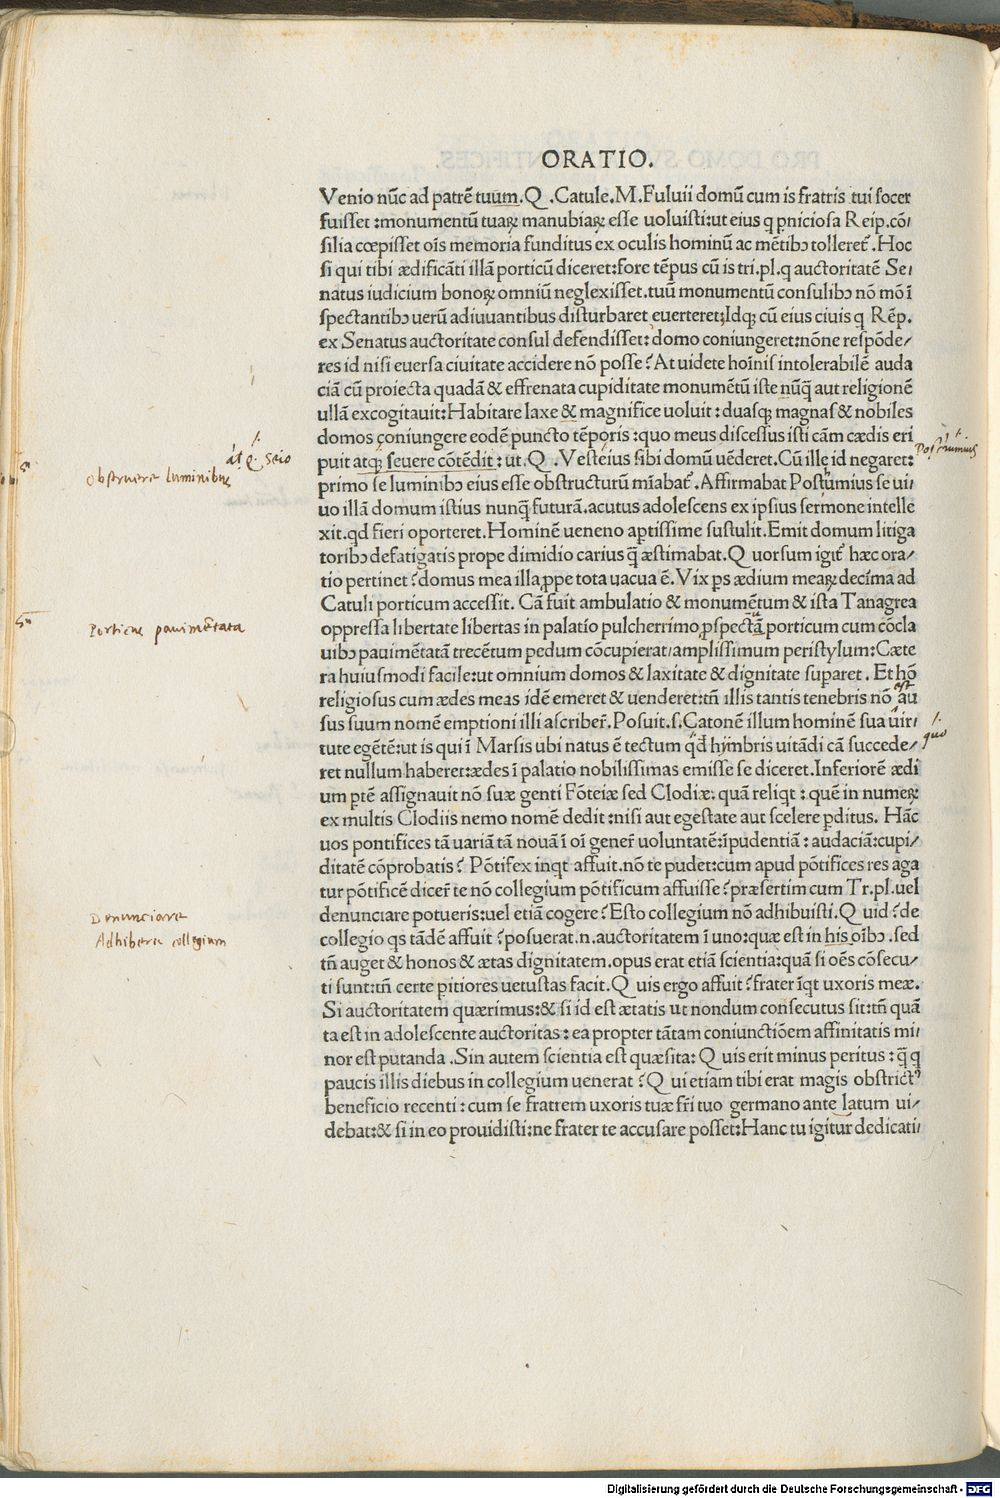 ORATIO.
Venio nūc ad patrē tuum.Q .Catule.M.Fuluii domū cum is fratris tui socer
fuisset :monumentū tuaꝝ manubiaꝝ esse uoluisti:ut eius q ꝑniciosa Reip.cō/
silia cœpisset oīs memoria funditus ex oculis hominū ac mētibꝫ tolleret̄ .Hoc
si qui tibi ædificāti illā porticū diceret:fore tēpus cū is tri.pl.q auctoritatē Se/
natus iudicium bonoꝝ omniū neglexisset.tuū monumentū consulibꝫ nō mō ī
spectantibꝫ uerū adiuuantibus disturbaret euerteret;Idqꝫ cū eius ciuis q Rēp.
ex Senatus auctoritate consul defendisset: domo coniungeret:nōne respōde/
res id nisi euersa ciuitate accidere nō posse ? At uidete hoīnis intolerabilē auda
ciā cū proiecta quadā & effrenata cupiditate monumētū iste nūq̄ aut religionē
ullā excogitauit:Habitare laxe & magnifice uoluit : duasqꝫ magnas & nobiles
domos coniungere eodē puncto tēporis :quo meus discessus isti cām cædis eri
puit atqꝫ seuere cōtēdit : ut .Q . V esteius sibi domū uēderet.Cū ille id negaret:
primo se luminibꝫ eius esse obstructurū mīabat̄ . Affirmabat Postumius se ui/
uo illā domum istius nunq̄ futurā.acutus adolescens ex ipsius sermone intelle
xit.qd fieri oporteret.Hominē ueneno aptissime sustulit.Emit domum litiga
toribꝫ defatigatis prope dimidio carius q̄ æstimabat.Q uorsum igit̄ hæc ora/
tio pertinet ?domus mea illa ꝓpe tota uacua ē.Vix ꝑs ædium meaꝝ decīma ad
Catuli porticum accessit. Cā fuit ambulatio & monumētum & ista Tanagrea
oppressa libertate libertas in palatio pulcherrimo ꝓspectā porticum cum cōcla
uibꝫ pauimētatā trecētum pedum cōcupierat/amplissimum peristylum:Cæte
ra huiusmodi facile:ut omnium domos & laxitate & dignitate suꝑaret . Et hō
religiosus cum ædes meas idē emeret & uenderet:tn̄ illis tantis tenebris nō au
est
sus suum nomē emptioni illi ascriber̄.Posuit.s.Catonē illum hominē sua uir/
tute egētē:ut is qui ī Marsis ubi natus ē tectum q̄d hymbris uitādi cā succede/
ret nullum haberet:ædes ī palatio nobilissimas emisse se diceret.Inferiorē ædi
um ptē assignauit nō suæ genti Fōteiæ sed Clodiæ: quā reliqt : quē in numeꝝ
ex multis Clodiis nemo nomē dedit :nisi aut egestate aut scelere ꝑditus. Hāc
uos pontifices tā uariā tā nouā ī oī gener̄ uoluntatē:īpudentiā : audaciā:cupi/
ditatē cōprobatis ? Pōtifex inqt affuit.nō te pudet:cum apud pōtifices res aga
tur pōtificē dicer̄ te nō collegium pōtificum affuisse ?præsertim cum Tr.pl.uel
denunciare potueris:uel etiā cogere ? Esto collegium nō adhibuisti.Q uid ?de
collegio qs tādē affuit ?posuerat.n.auctoritatem ī uno:quæ est in his oībꝫ .sed
tn̄ auget & honos & ætas dignitatem.opus erat etiā scientia:quā si oēs cōsecu/
ti sunt:tn̄ certe pitiores uetustas facit.Q uis ergo affuit ?frater īqt uxoris meæ.
Si auctoritatem quærimus:& si id est ætatis ut nondum consecutus sit:tn̄ quā
ta est in adolescente auctoritas : ea propter tātam coniunctiōem affinitatis mi/
nor est putanda .Sin autem scientia est quæsita: Q uis erit minus peritus : q̄ q
paucis illis diebus in collegium uenerat ?Q ui etiam tibi erat magis obstrictꝰ
beneficio recenti : cum se fratrem uxoris tuæ fr̄i tuo germano ante latum ui/
debat:& si in eo prouidisti:ne frater te accusare posset:Hanc tu igitur dedicati/
at q. seio
Obstruere luminibus
Postumius
Porticus pauimētata
quo
Denunciare
Adhibere collegium
Digitalisierung gefördert durch die Deutsche Forschungsgemeinschaft - DFG